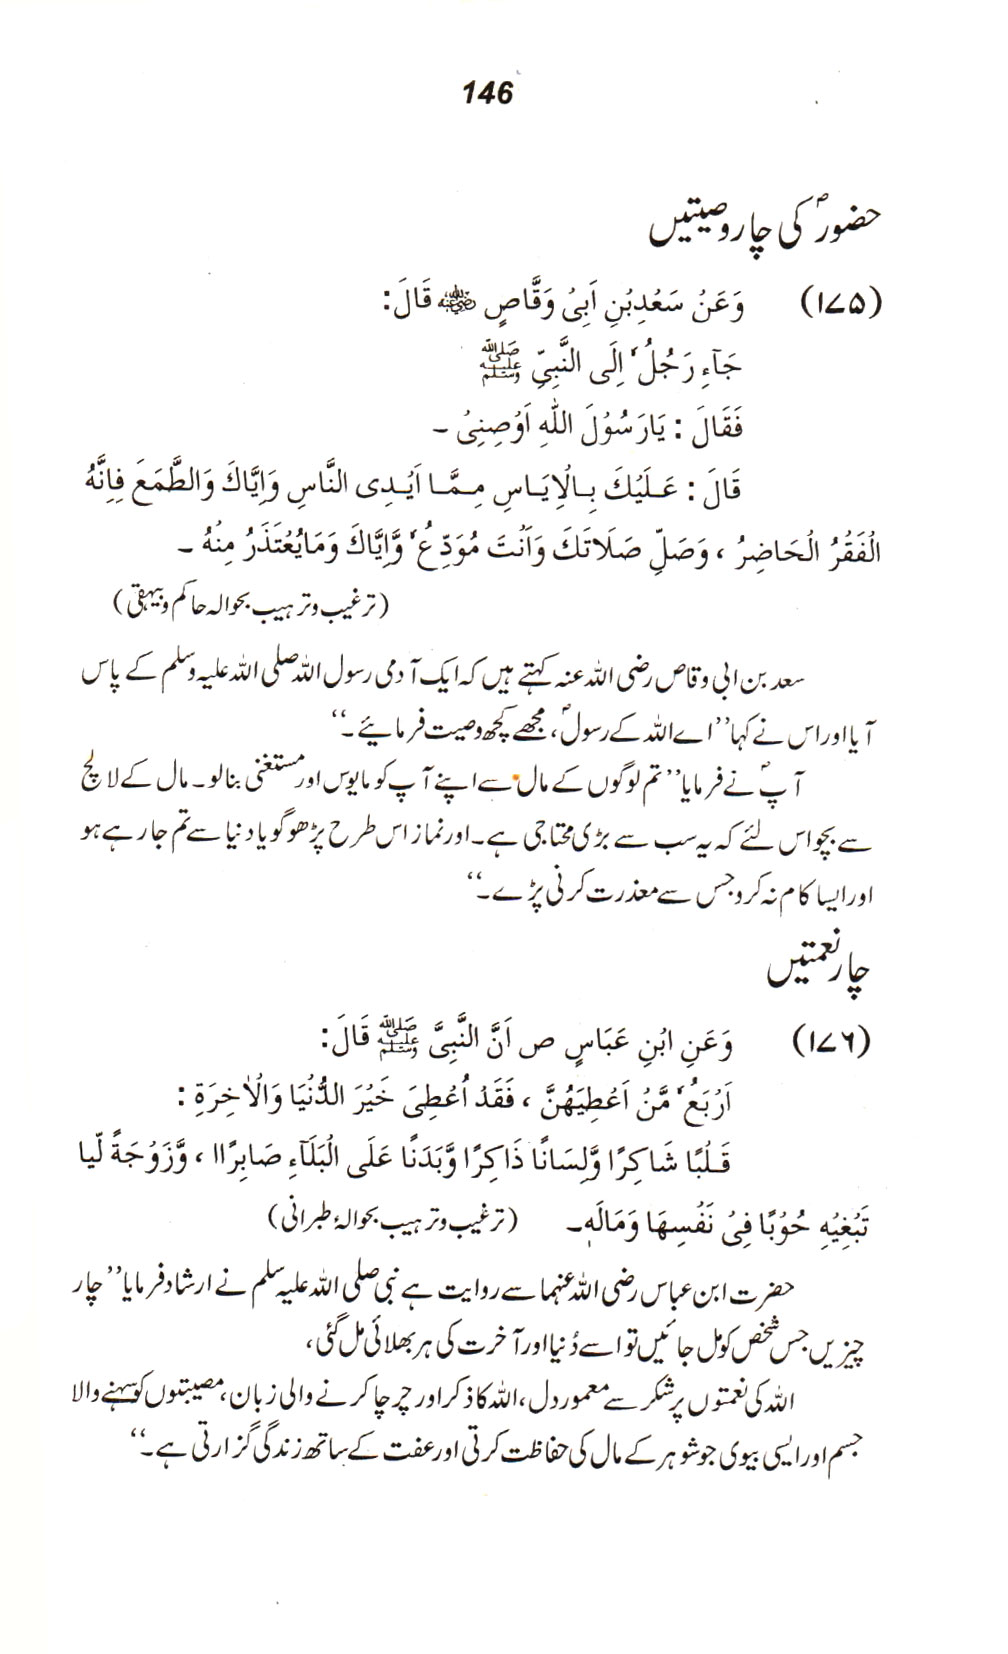 146
حضورؐ کی چار وصیتیں
(۱۷۵) وَعَنْ سَعْدِبْنِ اَبِیْ وَقَّاصٍ رضی اللہ عنہ قَالَ:
جَآءِ رَجُلُ ٗ اِلَی النَّبِیِّ ﷺ
فَقَالَ : یَارَسُوْلَ اللّٰهِ اَوْصِنِیْ ۔
قَالَ : عَلَیْكَ بِالْاِیَاسِ مِمَّا اَیْدِی النَّاسِ وَاِیَّاكَ وَالطَّمَعَ فِاِنَّهُ
الْفَقْرُ الْحَاضِرُ ، وَصَلِّ صَلَاتَكَ وَاَنْتَ مُوَدِّعُ ٗ وَّاِیَّاكَ وَمَایُعْتَذَرُ مِنْهُ ۔
(ترغیب و ترہیب بحوالہ حاکم و بیہقی)
سعد بن ابی وقاص رضی اللہ عنہ کہتے ہیں کہ ایک آدمی رسول اللہ صلی اللہ علیہ وسلم کے پاس
آیا اور اس نے کہا ’’اے اللہ کے رسولؐ، مجھے کچھ وصیت فرمائیے۔‘‘
آپؐ نے فرمایا ’’تم لوگوں کے مال سے اپنے آپ کو مایوس اور مستغنی بنالو۔ مال کے لالچ
سے بچو اس لئے کہ یہ سب سے بڑی محتاجی ہے۔ اور نماز اس طرح پڑھو گویا دنیا سے تم جا رہے ہو
اور ایسا کام نہ کرو جس سے معذرت کرنی پڑے۔‘‘
چار نعمتیں
(۱۷۶) وَعَنِ ابْنِ عَبَاسٍ ص اَنَّ النَّبِیَّ ﷺ قَالَ:
اَرْبَعُ ٗ مَّنْ اَعْطِیَهُنَّ ، فَقَدْ اُعْطِیَ خَیْرَ الدُّنْیَا وَالْاٰخِرَةِ :
قَلْبًا شَاكِرًا وَّلِسَانًا ذَاكِرًا وَّبَدَنًا عَلَی الْبَلَآءِ صَابِرًا ا ، وَّزَوْجَةً لَّیا
تَبْغِیْهِ حُوْبًا فِیْ نَفْسِهَا وَمَالَهٖ۔ (ترغیب و ترہیب بحوالۂ طبرانی)
حضرت ابن عباس رضی اللہ عنہما سے روایت ہے نبی صلی اللہ علیہ سلم نے ارشاد فرمایا ’’چار
چیزیں جس شخص کو مل جائیں تو اسے دُنیا اور آخرت کی ہر بھلائی مل گئی،
اللہ کی نعمتوں پر شکر سے معمور دل، اللہ کا ذکر اور چرچا کرنے والی زبان، مصیبتوں کو سہنے والا
جسم اور ایسی بیوی جو شوہر کے مال کی حفاظت کرتی اور عفت کے ساتھ زندگی گزارتی ہے۔‘‘